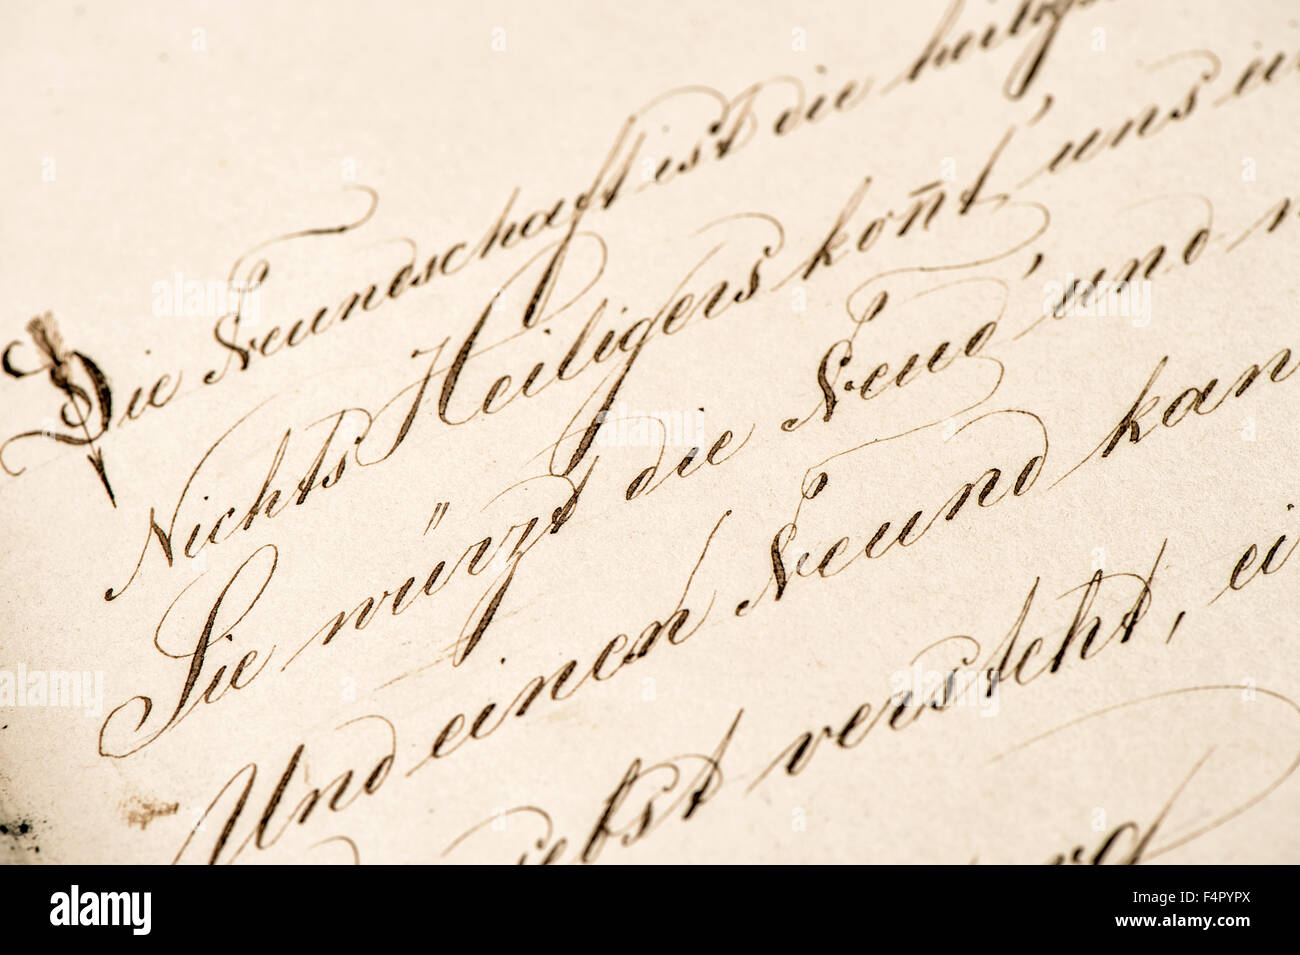 Die Freundschaft ist die heilig
Nichts Heiligers kon̄t' uns
Sie würzt die Freud' und
Und einen Freund kan
iebst versteht, ei
alamy stock photo
a
alamy
Image ID: F4PYPX
www.alamy.com